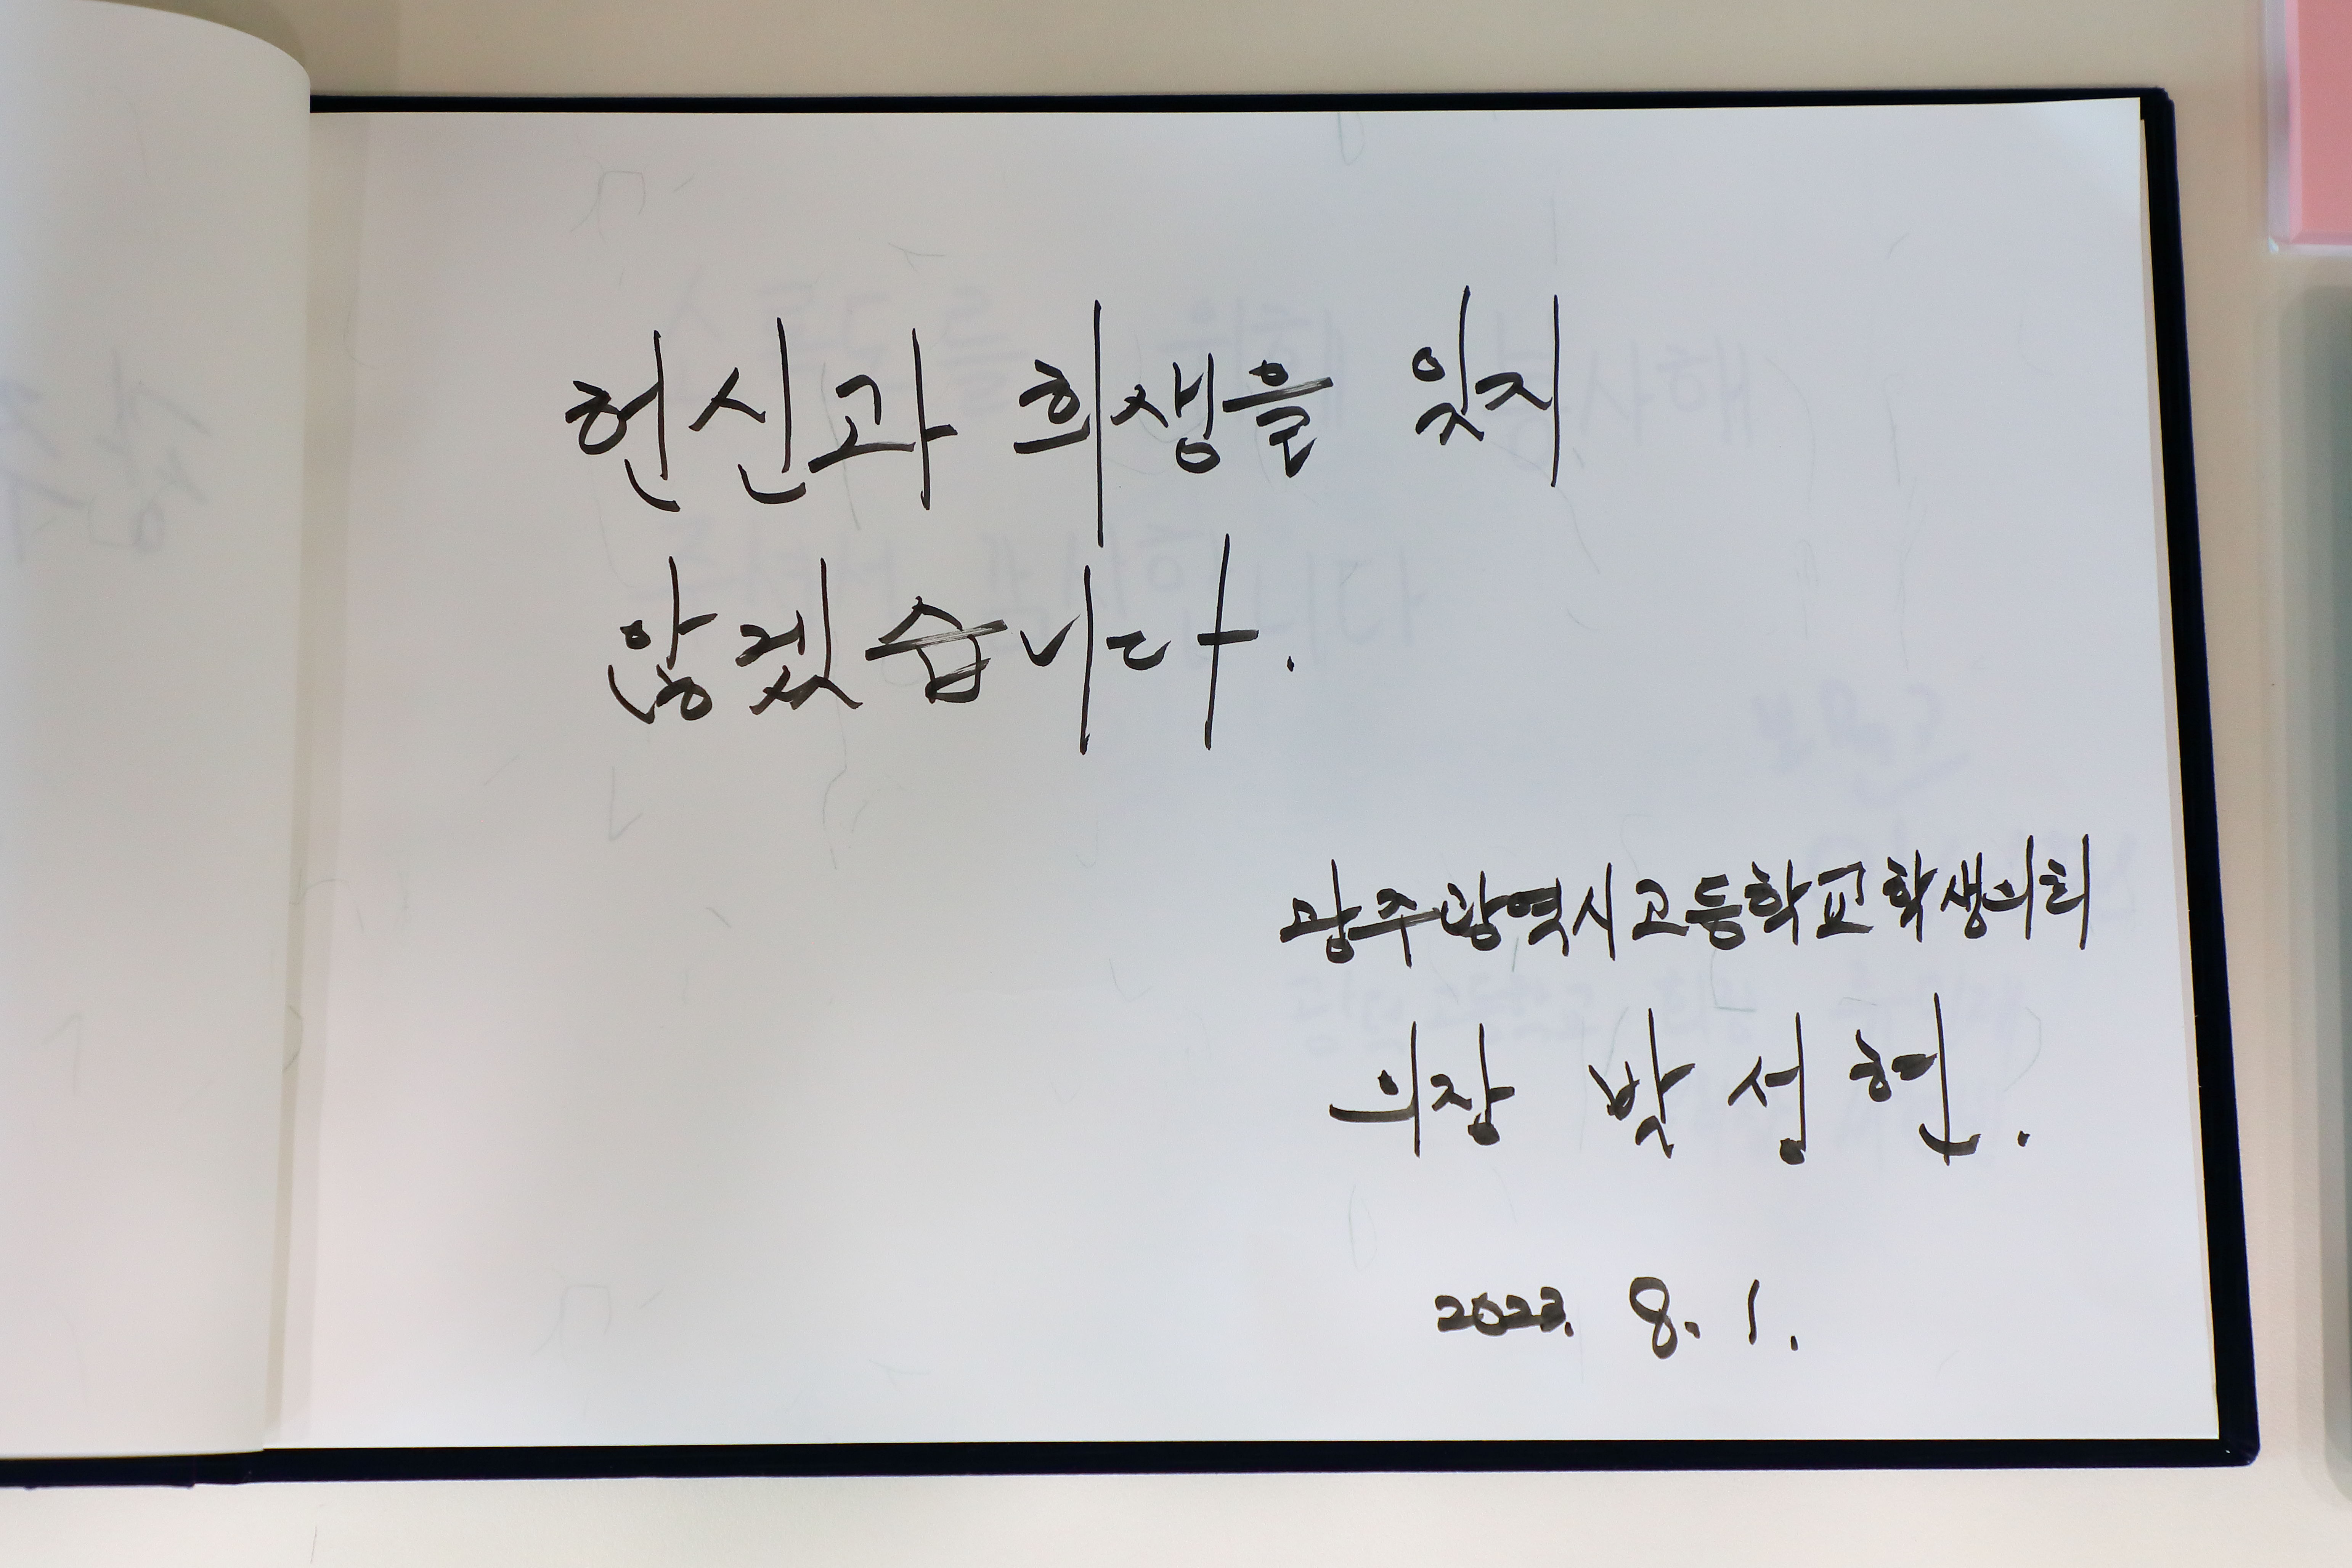 헌신과 희생을 잊지
않겠습니다.
광주광역시고등학교학생의회
의장 박성현.
2023. 8. 1.